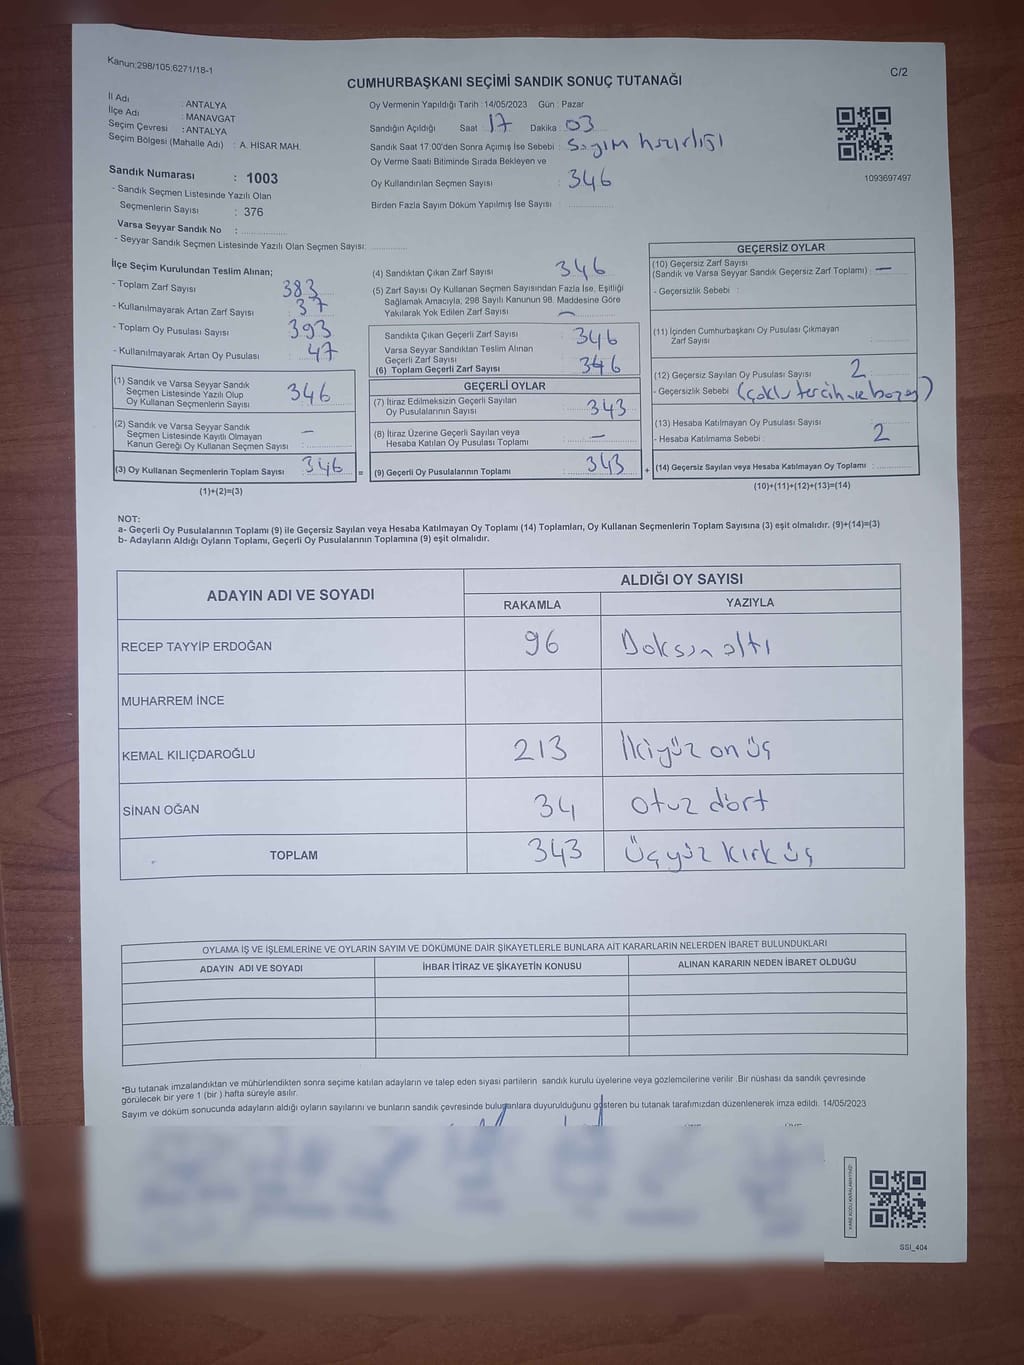 Kanun:298/105;6271/18-1
C/2
CUMHURBAŞKANI SEÇİMİ SANDIK SONUÇ TUTANAĞI
İl Adı : ANTALYA
İlçe Adı : MANAVGAT
Seçim Çevresi : ANTALYA
Seçim Bölgesi (Mahalle Adı) : A. HİSAR MAH.
Oy Vermenin Yapıldığı Tarih : 14/05/2023 Gün : Pazar
Sandığın Açıldığı Saat 17 Dakika 03
Sandık Saat 17:00'den Sonra Açımış İse Sebebi : Sayım hazırlığı
Oy Verme Saati Bitiminde Sırada Bekleyen ve
Oy Kullandırılan Seçmen Sayısı : 346
Birden Fazla Sayım Döküm Yapılmış İse Sayısı :
1093697497
Sandık Numarası : 1003
- Sandık Seçmen Listesinde Yazılı Olan
Seçmenlerin Sayısı : 376
Varsa Seyyar Sandık No :
- Seyyar Sandık Seçmen Listesinde Yazılı Olan Seçmen Sayısı:
İlçe Seçim Kurulundan Teslim Alınan;
- Toplam Zarf Sayısı 383
- Kullanılmayarak Artan Zarf Sayısı : 37
- Toplam Oy Pusulası Sayısı 393
- Kullanılmayarak Artan Oy Pusulası : 47
(1) Sandık ve Varsa Seyyar Sandık
Seçmen Listesinde Yazılı Olup
Oy Kullanan Seçmenlerin Sayısı 346
(2) Sandık ve Varsa Seyyar Sandık
Seçmen Listesinde Kayıtlı Olmayan
Kanun Gereği Oy Kullanan Seçmen Sayısı : –
(3) Oy Kullanan Seçmenlerin Toplam Sayısı : 346 =
(1)+(2)=(3)
(4) Sandıktan Çıkan Zarf Sayısı 346
(5) Zarf Sayısı Oy Kullanan Seçmen Sayısından Fazla İse, Eşitliği
Sağlamak Amacıyla, 298 Sayılı Kanunun 98. Maddesine Göre
Yakılarak Yok Edilen Zarf Sayısı : –
Sandıkta Çıkan Geçerli Zarf Sayısı : 346
Varsa Seyyar Sandıktan Teslim Alınan
Geçerli Zarf Sayısı
(6) Toplam Geçerli Zarf Sayısı : 346
GEÇERLİ OYLAR
(7) İtiraz Edilmeksizin Geçerli Sayılan
Oy Pusulalarının Sayısı : 343
(8) İtiraz Üzerine Geçerli Sayılan veya
Hesaba Katılan Oy Pusulası Toplamı : –
(9) Geçerli Oy Pusulalarının Toplamı : 343 +
GEÇERSİZ OYLAR
(10) Geçersiz Zarf Sayısı
(Sandık ve Varsa Seyyar Sandık Geçersiz Zarf Toplamı) : –
- Geçersizlik Sebebi :
(11) İçinden Cumhurbaşkanı Oy Pusulası Çıkmayan
Zarf Sayısı :
(12) Geçersiz Sayılan Oy Pusulası Sayısı : 2
- Geçersizlik Sebebi (çoklu tercih ve
(13) Hesaba Katılmayan Oy Pusulası Sayısı :
- Hesaba Katılmama Sebebi : 2
(14) Geçersiz Sayılan veya Hesaba Katılmayan Oy Toplamı :
(10)+(11)+(12)+(13)=(14)
NOT:
a- Geçerli Oy Pusulalarının Toplamı (9) ile Geçersiz Sayılan veya Hesaba Katılmayan Oy Toplamı (14) Toplamları, Oy Kullanan Seçmenlerin Toplam Sayısına (3) eşit olmalıdır. (9)+(14)=(3)
b- Adayların Aldığı Oyların Toplamı, Geçerli Oy Pusulalarının Toplamına (9) eşit olmalıdır.
ADAYIN ADI VE SOYADI
ALDIĞI OY SAYISI
RAKAMLA YAZIYLA
RECEP TAYYİP ERDOĞAN 96 Doksan altı
MUHARREM İNCE
KEMAL KILIÇDAROĞLU 213 İkiyüz on üç
SİNAN OĞAN 34 otuz dört
TOPLAM 343 Üçyüz kırk üç
OYLAMA İŞ VE İŞLEMLERİNE VE OYLARIN SAYIM VE DÖKÜMÜNE DAİR ŞİKAYETLERLE BUNLARA AİT KARARLARIN NELERDEN İBARET BULUNDUKLARI
ADAYIN ADI VE SOYADI İHBAR İTİRAZ VE ŞİKAYETİN KONUSU ALINAN KARARIN NEDEN İBARET OLDUĞU
*Bu tutanak imzalandıktan ve mühürlendikten sonra seçime katılan adayların ve talep eden siyasi partilerin sandık kurulu üyelerine veya gözlemcilerine verilir .Bir nüshası da sandık çevresinde
görülecek bir yere 1 (bir ) hafta süreyle asılır.
Sayım ve döküm sonucunda adayların aldığı oyların sayılarını ve bunların sandık çevresinde bulunanlara duyurulduğunu gösteren bu tutanak tarafımızdan düzenlenerek imza edildi. 14/05/2023
SSİ_404